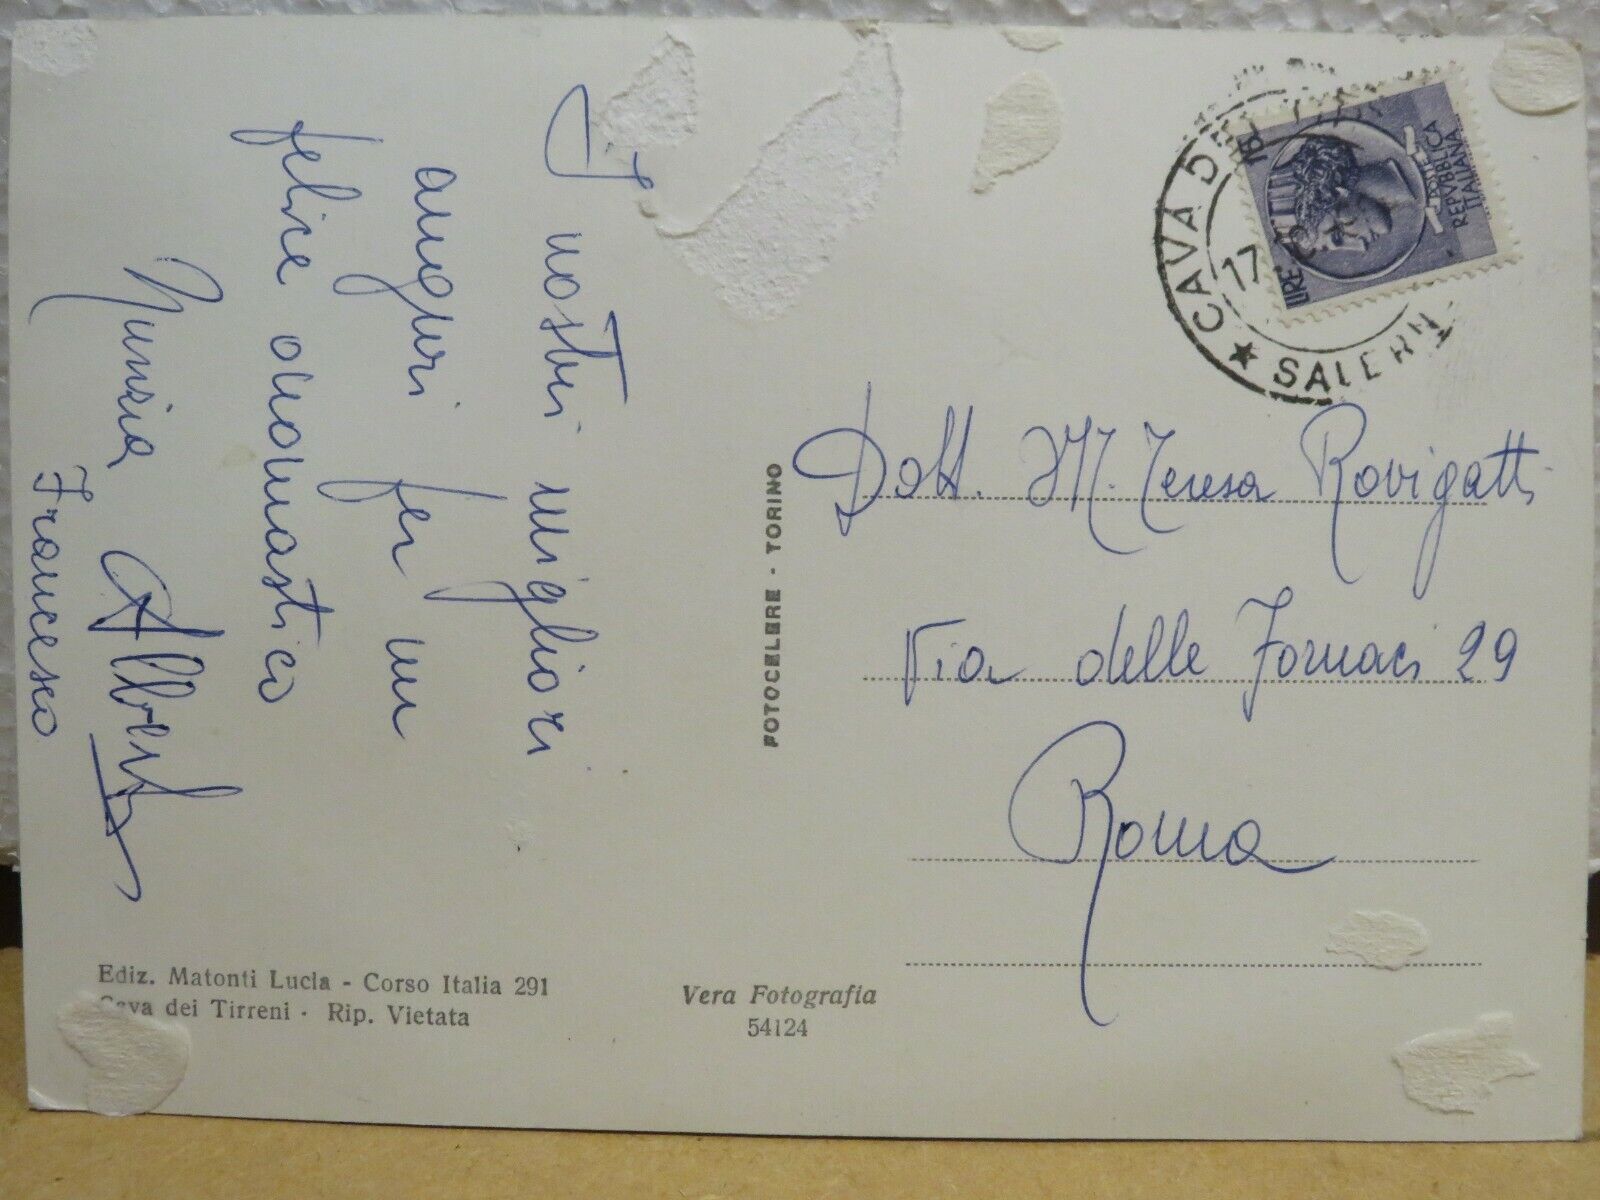 I nostri migliori
auguri per un
felice onomastico
Nunzia Alberto
Francesco
FOTOCELERE - TORINO
Dott. M. Teresa Rovigatti
Via delle Fornaci 29
Roma
CAVA DEI
SALERN
17
18
LIRE
POSTE
REPVBBLICA
ITALIANA
Ediz. Matonti Lucia - Corso Italia 291
Cava dei Tirreni - Rip. Vietata
Vera Fotografia
54124